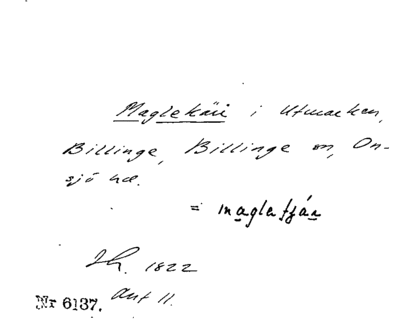 Maglekärr i Utmarken,
Billinge, Billinge sn, On-
sjö hd.
= maglatjár
Sk. 1822
Nr 6137. Ant 11.